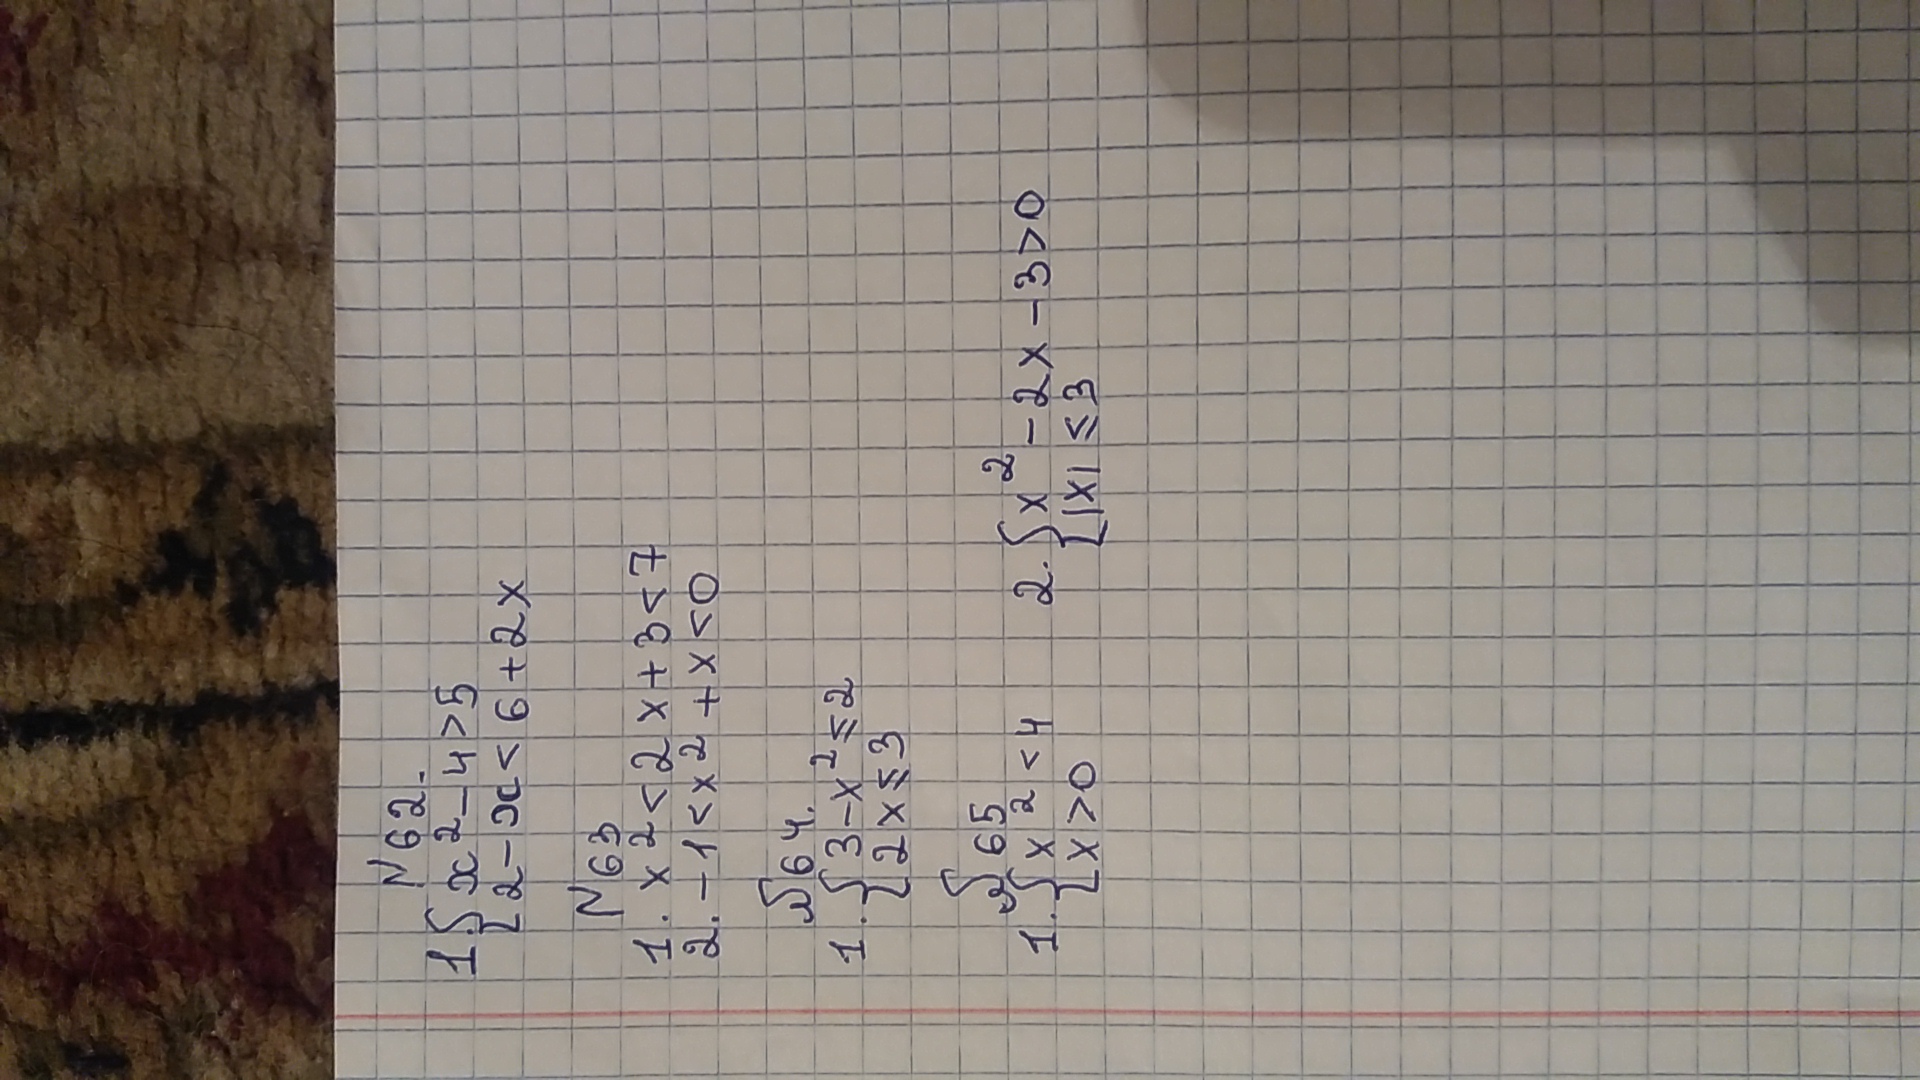 N 62.
1. { x² - 4 > 5
2 - x < 6 + 2x
N 63
1. x² < 2x + 3 < 7
2. -1 < x² + x < 0
N 64.
1. { 3 - x² ≤ 2
2x ≤ 3
N 65
1. { x² < 4 2. { x² - 2x - 3 > 0
x > 0 |x| ≤ 3